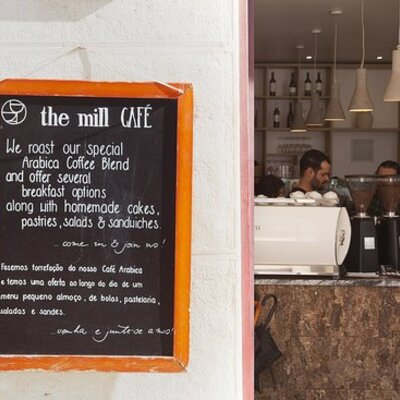 the mill CAFÉ
We roast our special
Arabica Coffee Blend
and offer several
breakfast options
along with homemade cakes,
pastries, salads & sandwiches.
...come in & join us!
Fazemos torrefação do nosso Café Arabica
e temos uma oferta ao longo do dia de um
menu pequeno almoço, de bolos, pastelaria,
saladas e sandes.
...venha e junte-se a nós!